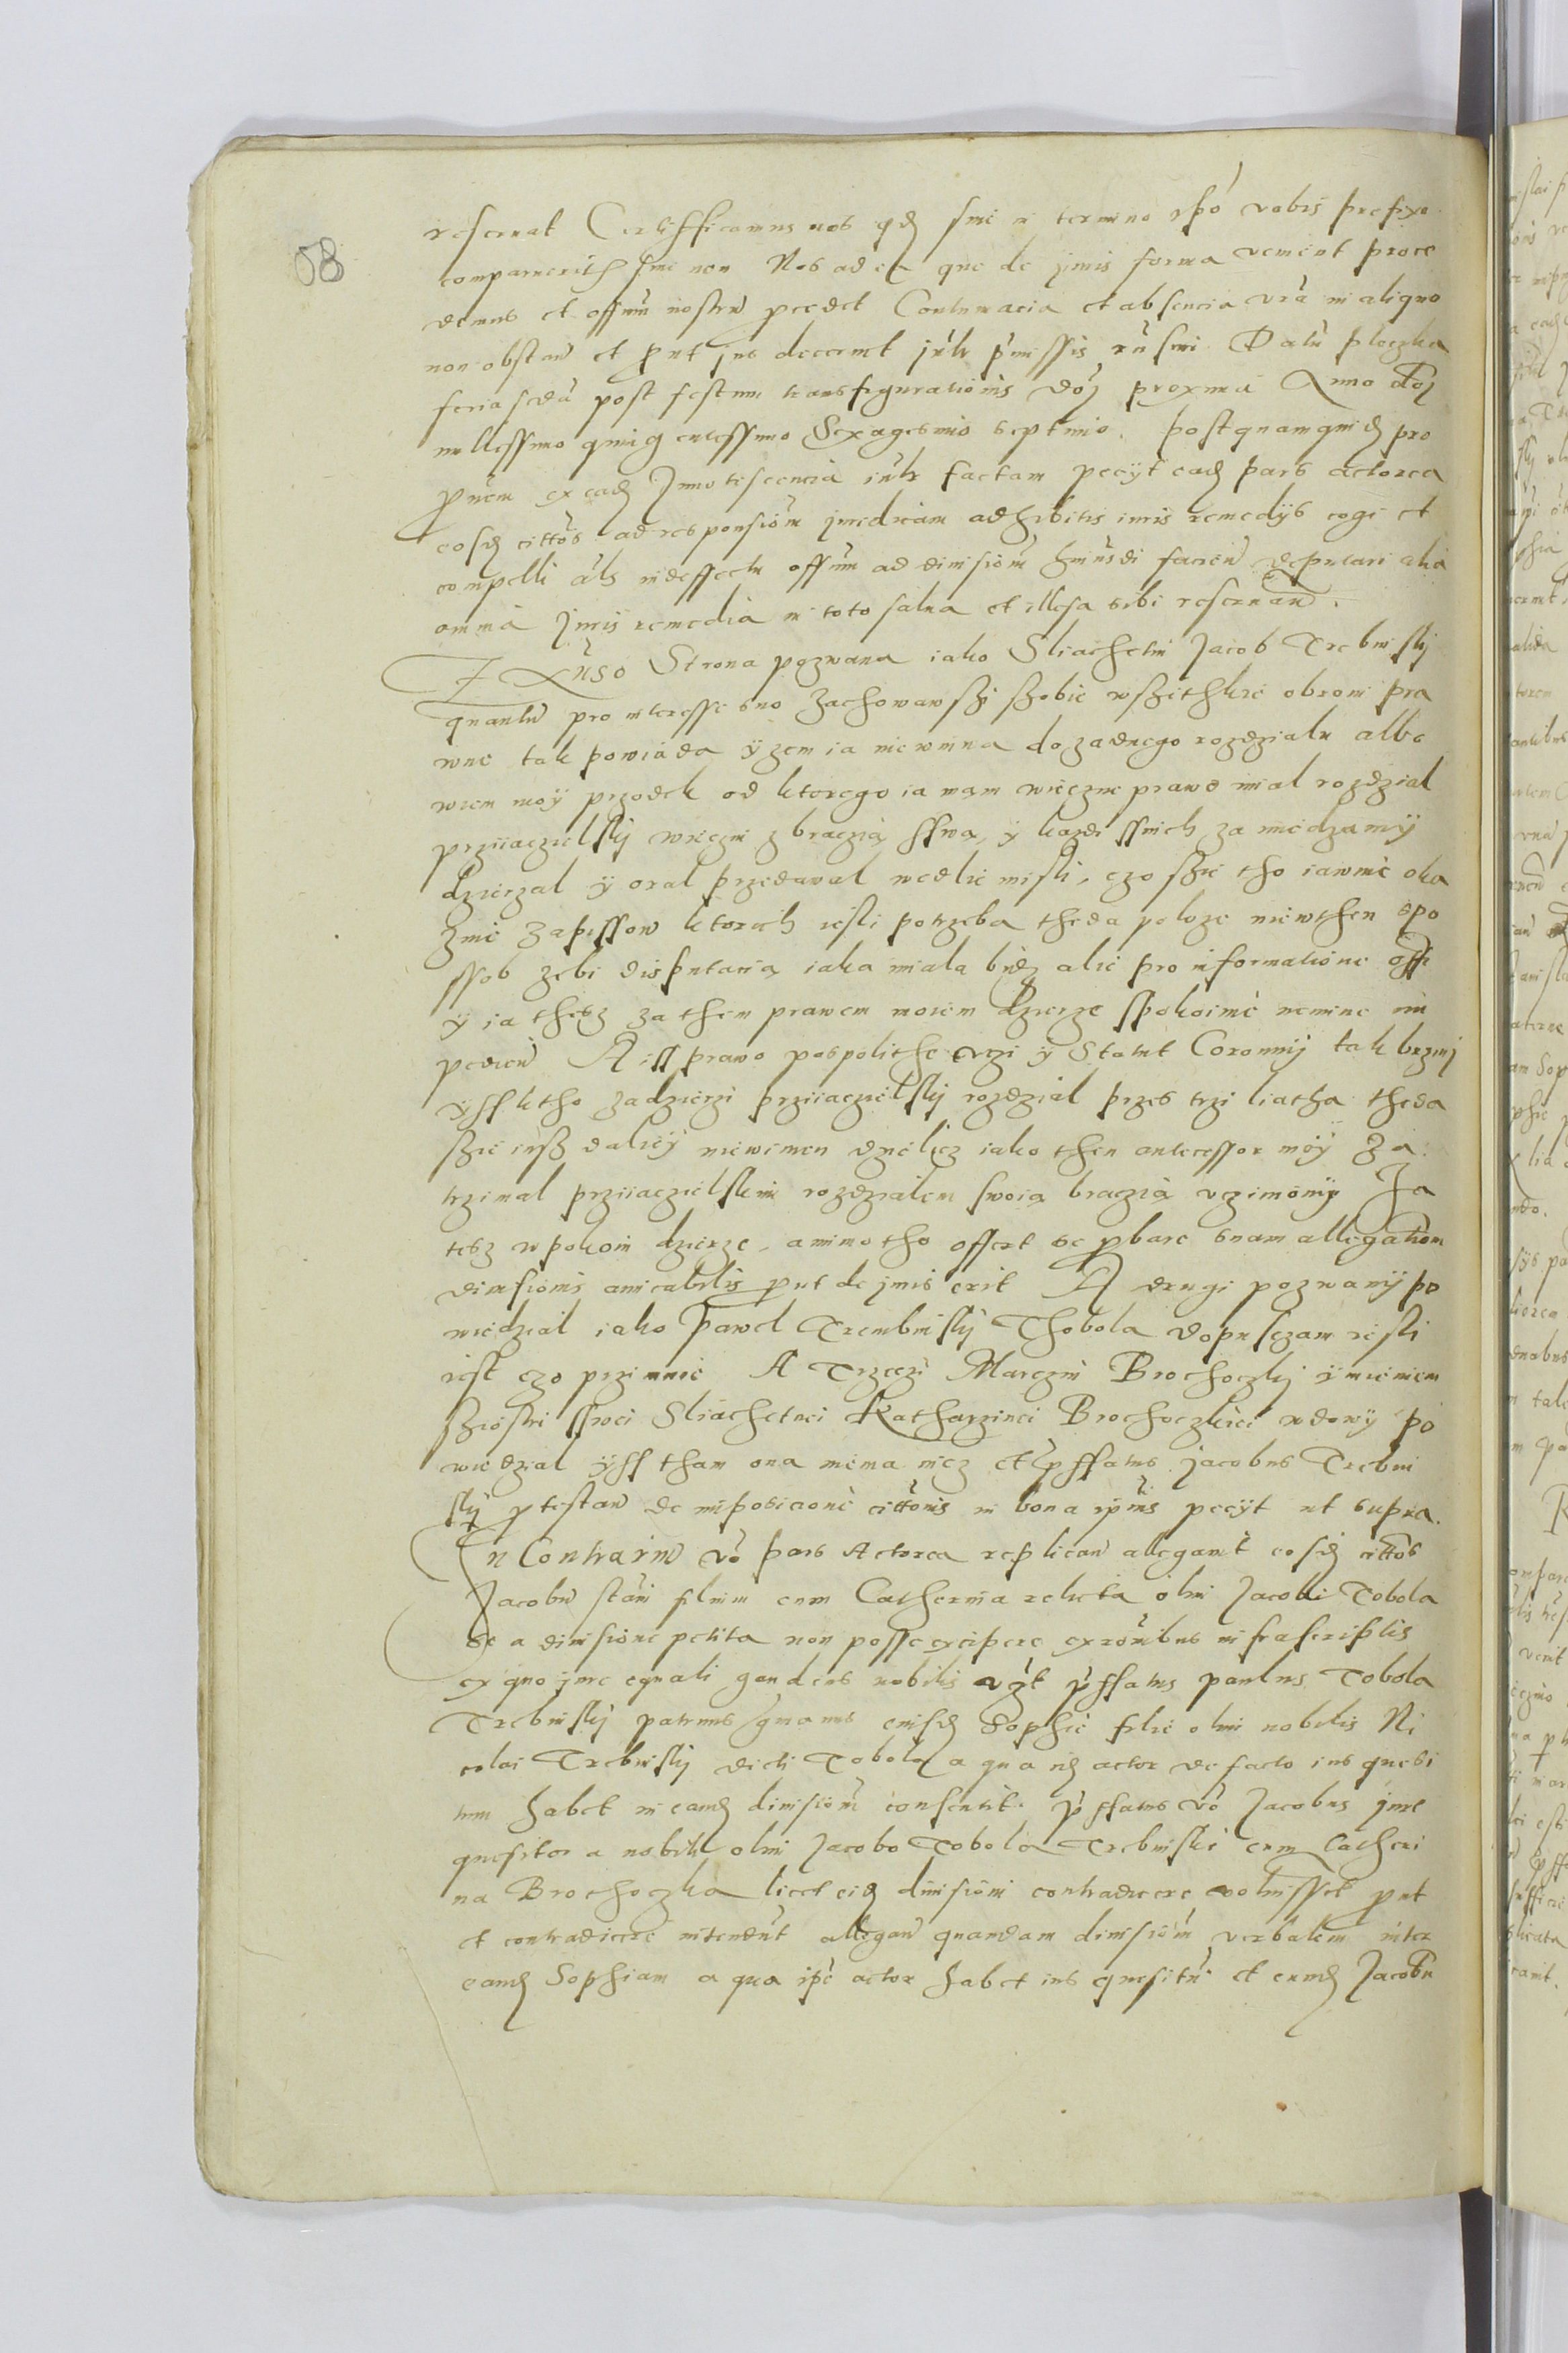 08
reservat Certifficamus vos qd sive in termino ipo vobis prefixo
comparueritis sive non Nos ad ea que de juris forma venient proce
demus et offium nostru pcedet Contumacia et absencia vra in aliquo
non obstan et put jus decernet juxta pmissis Datu ploczka
feria scda post festum transfigurationis doj proxima Anno doj
millessimo quingentessimo Sexagesimo septimo. postquamquid pro
pnem ex ead Innotescencia factam peciit ead pars actorea
eosd cittos ad responsiom juridicam adhibitis iuris remedijs cogi et
compelli als in effectu offium ad divisiom hmusdi facien deputari alia
omnia Juris remedia in toto salva et illesa sibi reservan.
Strona pozwana iako Sliachetni Jacob Trebinskj
quantu pro interesse suo zachowawszi szobie wszithkie obroni pra
wne tak powiada yzem ia niewinna do zadnego rozdzialu albo
wiem moy przodek od ktorego ia mam wieczne prawo mial rozdzial
prziiaczielskj wieczni z braczia sswa y kazdi ssnich za miedzamy
dzierzal y oral przedawal wedlie misli, czo szie tho iawnie oka
zuie zapissow ktorich iesli potrzeba theda poloze niewthen spo
ssob zebi disputatia iaka miala bidz alie pro informatione offi
y ia thesz za them prawem moiem dzierze spokoinie nemine im
pedien A iss prawo pospolithe vczi y Statut Coronnij tak brzmj
yss ktho zadzierzi prziiaczielskj rozdzial przes trzi liatha theda
szie iusz daliey niewinen dzielicz iako then antecessor moy za
trzimal prziiaczielskim rozdzialem swoia braczia vcziniony Ja
tesz w pokoiu dzierze, a mimo tho offert se pbare suam allegatiom
divisionis amicabilis put de juris erit A drugi pozwany po
wiedzial iako Pawel Trembinskj Thobola dopusczam iesli
iest czo przimnie A Trzeczi Marczin Brochoczkj ymieniem
sziostri sswei Sliachetnei Katharzinei Brochoczkiei wdowy po
wiedzial yss tham ona niema nicz et pffatus Jacobus Trebin
skj ptestan de impositione cittonis in bona ipius peciit ut supra.
In Contrariu vo pars Actorea replican allegavit eosd cittos
Jacobu stani filium cum Catherina relicta olim Jacobi Tobola
se a divisione petita non posse excipere exronibus infrascriptis
ex quo jure equali gaudens nobilis pffatus paulus Tobola
Trebinskj patruus eiusd Sophie filie olim nobilis Ni
colai Trebinskj dicti Tobola a qua id actor de facto ius quesi
tum habet in eamd divisiom consensit. pffatus vo Jacobus jure
quesitor a nobili olim Jacobo Tobola Trebinskj cum Catheri
na Brochoczka licet eid divisioni contradicere voluisset put
et contradicere intendut allegan quandam divisiom verbalem inter
eamd Sophiam a qua ipe actor habet ius quesitu et eumd Jacobu